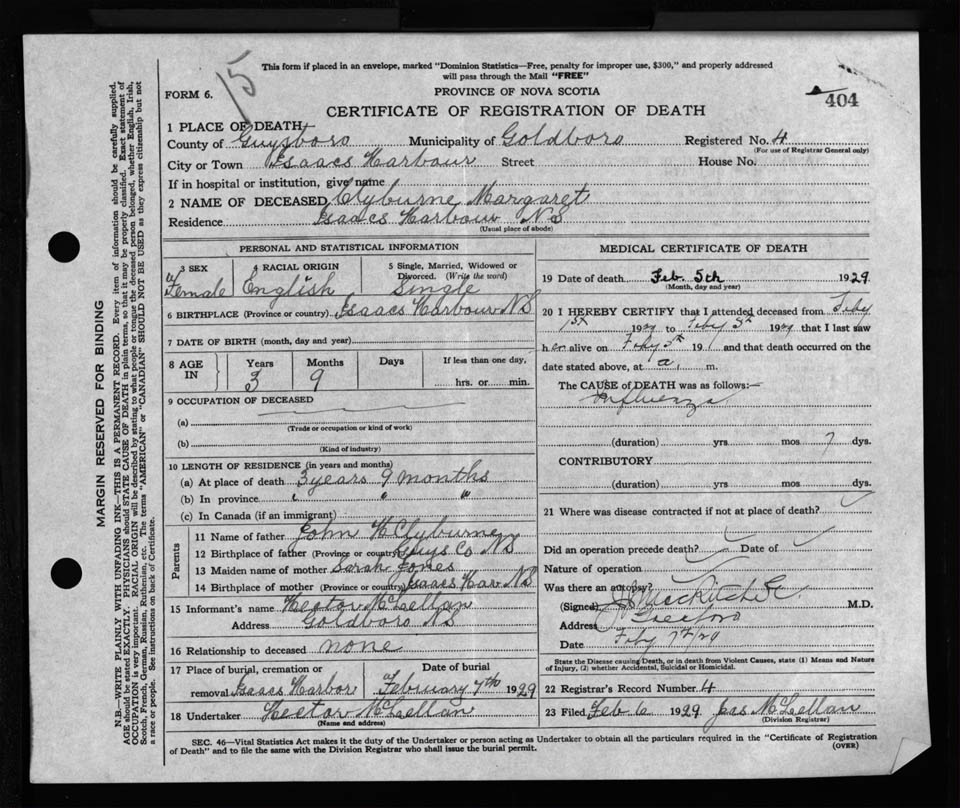 15
This form if placed in an envelope, marked "Dominion Statistics—Free, penalty for improper use, $300," and properly addressed
will pass through the Mail "FREE"
FORM 6.
PROVINCE OF NOVA SCOTIA
404
CERTIFICATE OF REGISTRATION OF DEATH
1 PLACE OF DEATH
County of Guysboro Municipality of Goldboro Registered No. 4
(For use of Registrar General only)
City or Town Isaacs Harbour Street House No.
If in hospital or institution, give name
2 NAME OF DECEASED Clyburne Margaret
Residence Isaacs Harbour NS
(Usual place of abode)
PERSONAL AND STATISTICAL INFORMATION
3 SEX 4 RACIAL ORIGIN 5 Single, Married, Widowed or
Divorced. (Write the word)
Female English Single
6 BIRTHPLACE (Province or country) Isaacs Harbour NS
7 DATE OF BIRTH (month, day and year)
8 AGE IN Years Months Days If less than one day,
3 9 hrs. or min.
9 OCCUPATION OF DECEASED
(a)
(Trade or occupation or kind of work)
(b)
(Kind of industry)
10 LENGTH OF RESIDENCE (in years and months)
(a) At place of death 3 years 9 months
(b) In province " " "
(c) In Canada (if an immigrant)
Parents
11 Name of father John H Clyburne
12 Birthplace of father (Province or country) Guys Co NS
13 Maiden name of mother Sarah Jones
14 Birthplace of mother (Province or country) Isaacs Har NS
15 Informant's name Hector McLellan
Address Goldboro NS
16 Relationship to deceased none
17 Place of burial, cremation or Date of burial
removal Isaacs Harbor February 7th 1929
18 Undertaker Hector McLellan
(Name and address)
MEDICAL CERTIFICATE OF DEATH
19 Date of death Feb. 5th 1929
(Month, day and year)
20 I HEREBY CERTIFY that I attended deceased from Feby
1st 1929 to Feby 5th 1929 that I last saw
her alive on Feby 5th 191 and that death occurred on the
date stated above, at a. m.
The CAUSE of DEATH was as follows:—
Influenza
(duration) yrs mos 7 dys.
CONTRIBUTORY
(duration) yrs mos dys.
21 Where was disease contracted if not at place of death?
Did an operation precede death? Date of
Nature of operation
Was there an autopsy?
(Signed) MacRitchie M.D.
Address
Date Feby 7th/29
State the Disease causing Death, or in death from Violent Causes, state (1) Means and Nature
of Injury, (2) whether Accidental, Suicidal or Homicidal.
22 Registrar's Record Number 4
23 Filed Feb 6 1929 Jas McLellan
(Division Registrar)
SEC. 46—Vital Statistics Act makes it the duty of the Undertaker or person acting as Undertaker to obtain all the particulars required in the "Certificate of Registration
of Death" and to file the same with the Division Registrar who shall issue the burial permit.
(OVER)
MARGIN RESERVED FOR BINDING
N.B.—WRITE PLAINLY WITH UNFADING INK—THIS IS A PERMANENT RECORD. Every item of information should be carefully supplied.
AGE should be stated EXACTLY. PHYSICIANS should STATE CAUSE OF DEATH in plain terms, so that it may be properly classified. Exact statement of
OCCUPATION is very important. RACIAL ORIGIN will be described by stating to what people or tongue the deceased person belonged, whether English, Irish,
Scotch, French, German, Russian, Ruthenian, etc. The terms "AMERICAN" or "CANADIAN" SHOULD NOT BE USED as they express citizenship but not
a race or people. See instructions on back of Certificate.